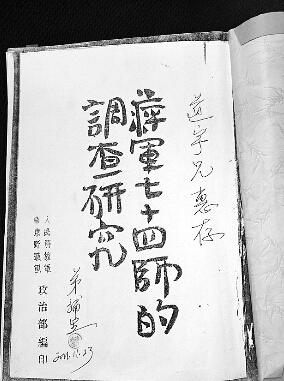 宇兄惠存
蔣軍七十四師的
調查研究
人民解放軍
華東野戰軍
政治部編印
弟